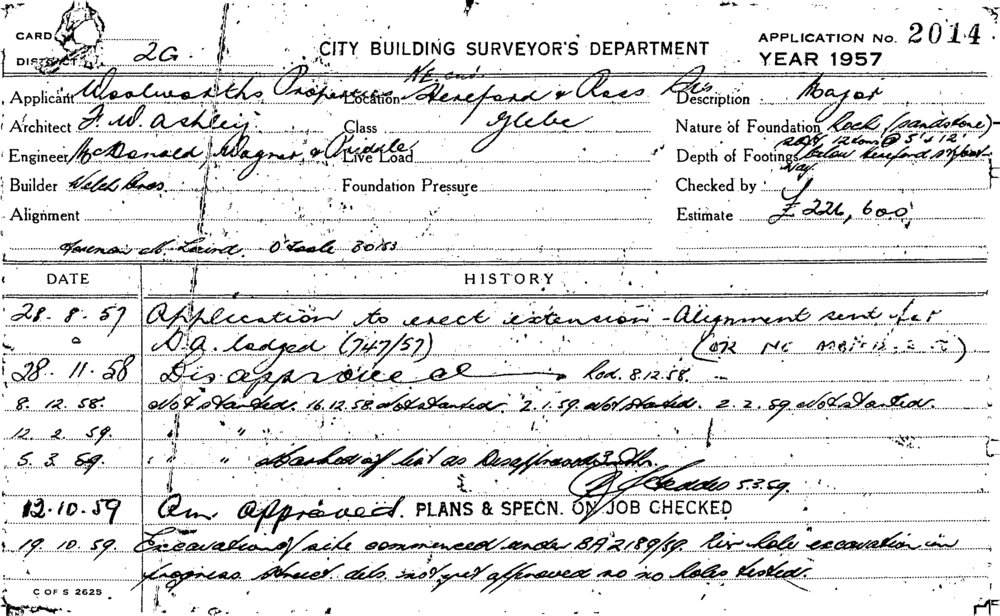 CARD
DISTRICT 2G. CITY BUILDING SURVEYOR'S DEPARTMENT APPLICATION No. 2014
YEAR 1957
Applicant Woolworths Properties Location Hereford & Ross Description Major
Architect F. W. Ashley Class Glebe Nature of Foundation Rock (sandstone)
Engineer McDonald, Wagner & Priddle Live Load Depth of Footings below Hereford
Builder Welch Bros Foundation Pressure Checked by
Alignment Estimate £ 226,600
O'Toole
DATE HISTORY
28. 8. 57 Application to erect extension - Alignment sent for
D.A. lodged (747/57)
28. 11. 58 Disapproved 8.12.58.
8. 12. 58. Not started. 16.12.58 Not started. 2.1.59. Not started. 2. 2. 59 Not started.
12. 2. 59. " "
5. 3. 59. " " marked off list as Disapproved
5.3.59.
12.10.59 Am approved. PLANS & SPECN. ON JOB CHECKED
19. 10. 59. Excavation of site commenced under BA 2189/59. hole excavation in
progress. Struct. dets. not yet approved so no holes tested.
C OF S 2625